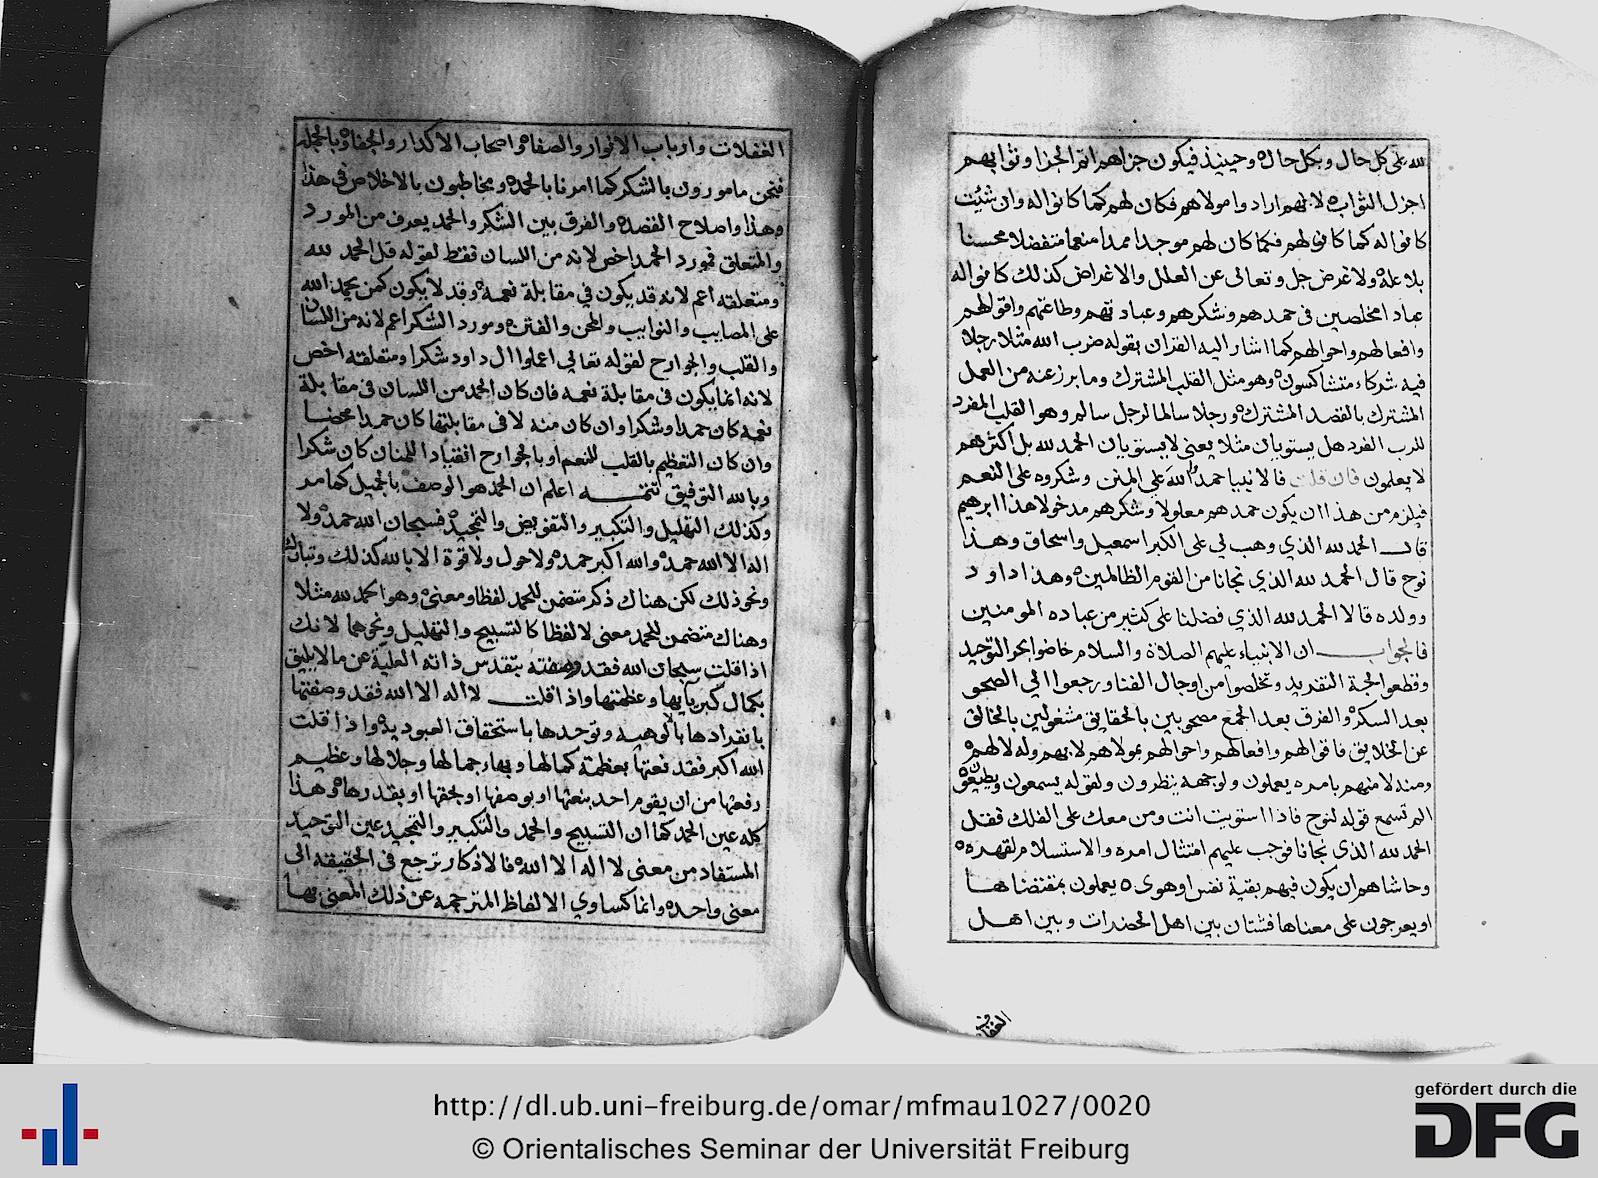 لله على كل حال وبكل حال وحينيذ فيكون جزاهم اتم الجزا وثوابهم
اجزل الثواب لانهم ارادوا مولاهم فكان لهم كما كانوا له وان شيت
كانوا له كما كان لهم فكما كان لهم موجدا ممدا منعما متفضلا محسنا
بلا علة ولا غرض جل وتعالى عن العلل والاغراض كذلك كانوا له
عبادا مخلصين في حمدهم وشكرهم وعبادتهم وطاعتهم واقوالهم
وافعالهم واحوالهم كما اشار اليه القران بقوله ضرب الله مثلا رجلا
فيه شركاء متشاكسون وهو مثل القلب المشترك وما برز عنه من العمل
المشترك بالقصد المشترك ورجلا سالما لرجل سالم وهو القلب المفرد
للرب الفرد هل يستويان مثلا يعني لا يستويان الحمد لله بل اكثرهم
لا يعلمون فان قلت فالانبيا حمدوا الله على المنن وشكروه على النعم
فيلزم من هذا ان يكون حمدهم معلولا وشكرهم مدخولا هذا ابرهيم
قال الحمد لله الذي وهب لي على الكبر اسمعيل واسحاق وهذا
نوح قال الحمد لله الذي نجانا من القوم الظالمين وهذا داود
وولده قالا الحمد لله الذي فضلنا على كثير من عباده المومنين
فالجواب ان الانبياء عليهم الصلاة والسلام خاضوا بحر التوحيد
وقطعوا لجة التفريد وتخلصوا من اوجال الفنا ورجعوا الي الصحو
بعد السكر والفرق بعد الجمع مصحوبين بالحقايق مشغولين بالخالق
عن الخلايق فاقوالهم وافعالهم واحوالهم بمولاهم لا بهم وله لا لهم
ومنه لا منهم بامره يعملون ولوجهه ينظرون ولقوله يسمعون ويطيعون
الم تسمع قوله لنوح فاذا استويت انت ومن معك على الفلك فقل
الحمد لله الذي نجانا فوجب عليهم امتثال امره والاستسلام لقهره
وحاشاهم ان يكون فيهم بقية نفس او هوى يعملون بمقتضاها
او يعرجون على معناها فشتان بين اهل الحضرات وبين اهل
الغفلات
الغفلات وارباب الانوار والصفا واصحاب الاكدار والجفا وبالجملة
فنحن مامورون بالشكر كما امرنا بالحمد ومخاطبون بالاخلاص في هذا
وهذا واصلاح القصد والفرق بين الشكر والحمد يعرف من المورد
والمتعلق فمورد الحمد اخص لانه من اللسان فقط لقوله قل الحمد لله
ومتعلقه اعم لانه قد يكون في مقابلة نعمة وقد لا يكون كمن يحمد الله
على المصايب والنوايب والمحن والفتن ومورد الشكر اعم لانه من اللسان
والقلب والجوارح لقوله تعالي اعملوا ال داود شكرا ومتعلقه اخص
لانه انما يكون في مقابلة نعمه فان كان الحمد من اللسان في مقابلة
نعمه كان حمدا وشكرا وان كان منه لا في مقابلتها كان حمدا محضا
وان كان التعظيم بالقلب للنعم او بالجوارح انقيادا للمنان كان شكرا
وبالله التوفيق تتمه اعلم ان الحمد هو الوصف بالجميل كما مر
وكذلك التهليل والتكبير والتفويض والتمجيد فسبحان الله حمد ولا
اله الا الله حمد والله اكبر حمد ولا حول ولا قوة الا بالله كذلك وتبارك
ونحو ذلك لكن هناك ذكر متضمن للحمد لفظا ومعنى وهو احمد لله مثلا
وهناك متضمن للحمد معنى لا لفظا كالتسبيح والتهليل ونحوهما لانك
اذا قلت سبحان الله فقد وصفته بتقدس ذاته العلية عن ما لا يليق
بكمال كبريايها وعظمتها واذا قلت لا اله الا الله فقد وصفتها
بانفرادها بالوهيه وتوحدها باستحقاق العبوديه واذا قلت
الله اكبر فقد نعتها بعظمة كمالها وبهاء جمالها وجلالها وعظيم
رفعتها من ان يقوم احد بنعتها او بوصفها او بحقها او بقدرها وهذا
كله عين الحمد كما ان التسبيح والحمد والتكبير والتمجيد عين التوحيد
المستفاد من معنى لا اله الا الله فالاذكار ترجع في الحقيقه الى
معنى واحد وانما كساوي الالفاظ المترجمه عن ذلك المعنى بها
http://dl.ub.uni-freiburg.de/omar/mfmau1027/0020
© Orientalisches Seminar der Universität Freiburg
gefördert durch die
DFG